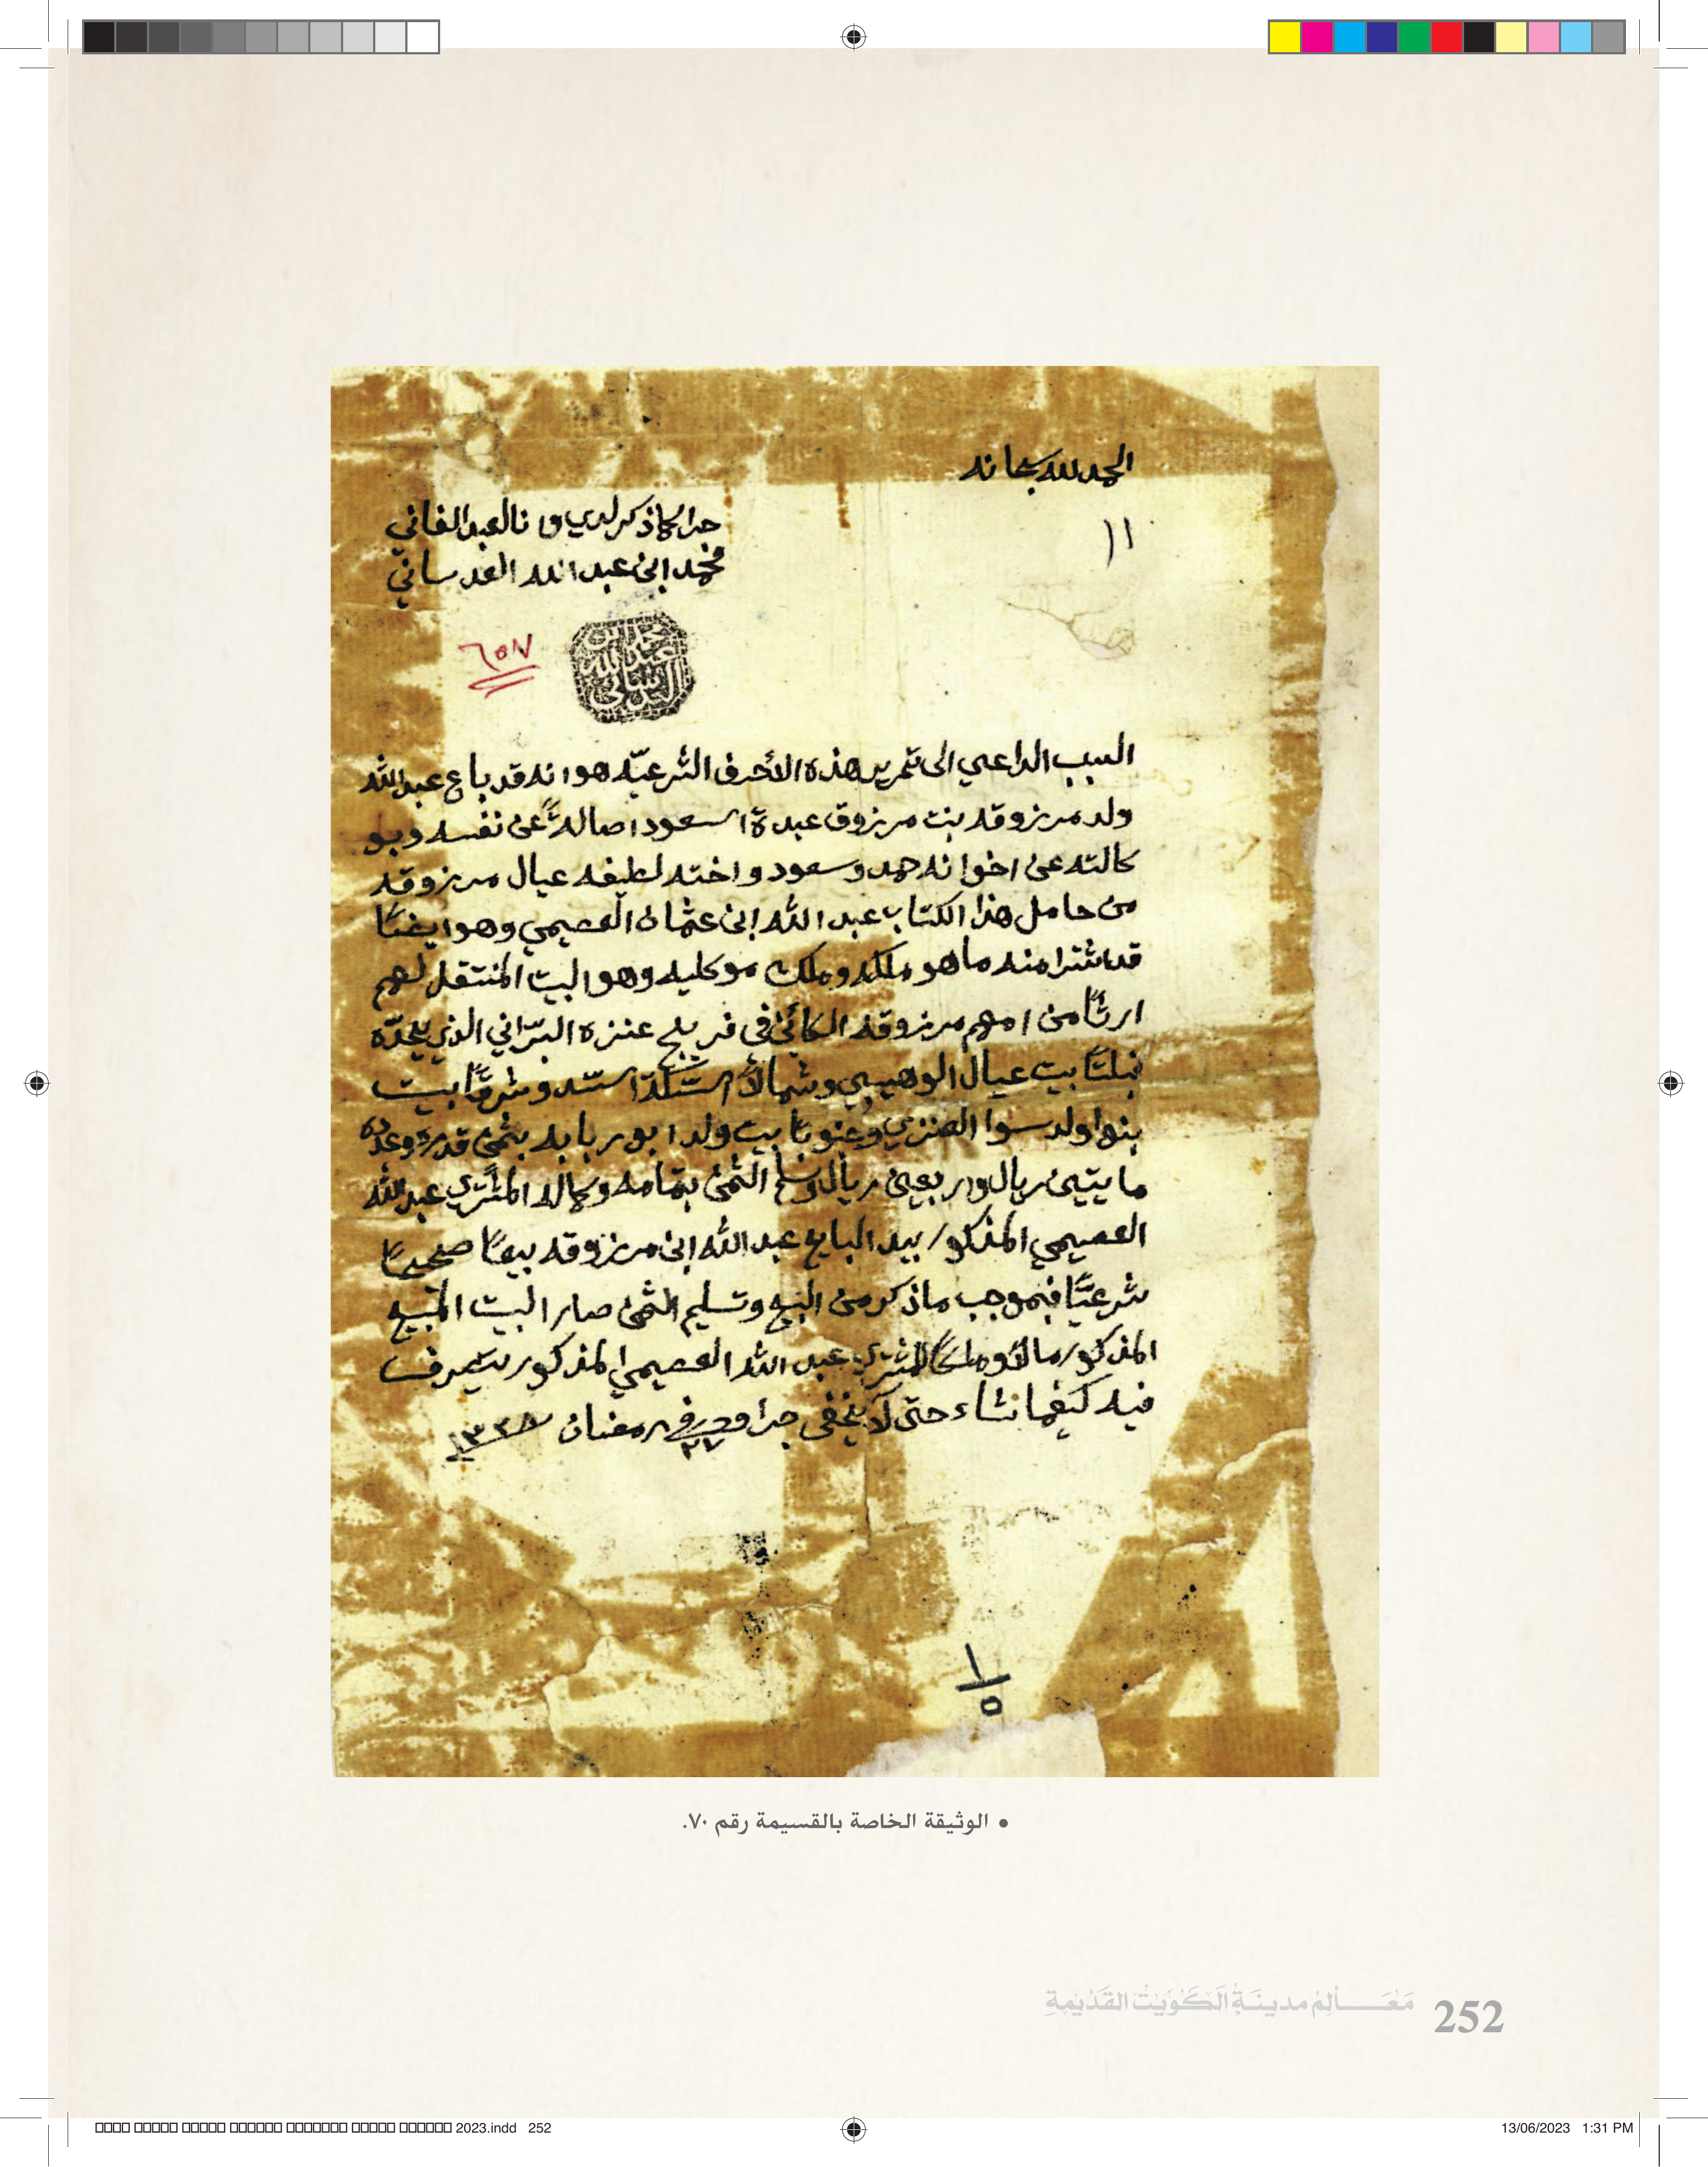 الحمد لله سبحانه
١١
جرا كما ذكر لدي وانا العبد الفاني
محمد ابن عبد الله العدساني
محمد ابن
عبد الله
العدساني
٦٥٧
السبب الداعي الى تحرير هذه الأحرف الشرعيّه هوانه قد باع عبد الله
ولد مرزوقه بنت مرزوق عبدة السعود اصالةً عن نفسه وبو
كالته عن اخوانه حمد وسعود واخته لطيفه عيال مرزوقه
من حامل هذا الكتاب عبد الله ابن عثمان العصيمي وهو ايضًا
قد اشترا منه ما هو ملكه وملك موكليه وهو البيت المنتقل لهم
ارثًا من امهم مرزوقه الكائن في فريج عنزه البرّاني الذي يحدّه
قبلتًا بيت عيال الوهيبي وشمالًا السّكة السّد وشرقًا بيت
بنوا ولد سوا العنزي وجنوبًا بيت ولد ابو ربابه بثمن قدره وعدده
مايتين ريال واربعين ريال وسلم الثمن بتمامه وكماله المشتري عبد الله
العصيمي المذكور بيد البايع عبد الله ابن مرزوقه بيعًا صحيحًا
شرعيًّا فبموجب ما ذكر من البيع وتسليم الثمن صار البيت المبيع
المذكور مالًا وملكًا للمشتري عبد الله العصيمي المذكور يتصرف
فيه كيفما شاء حتى لا يخفى جرا وحرر في ٢٧ رمضان
١
٥
• الوثيقة الخاصة بالقسيمة رقم ٧٠.
مَعَـــالِمُ مدينَـةِ الكُوَيْتِ القَدِيمَةِ 252
2023.indd 252 13/06/2023 1:31 PM